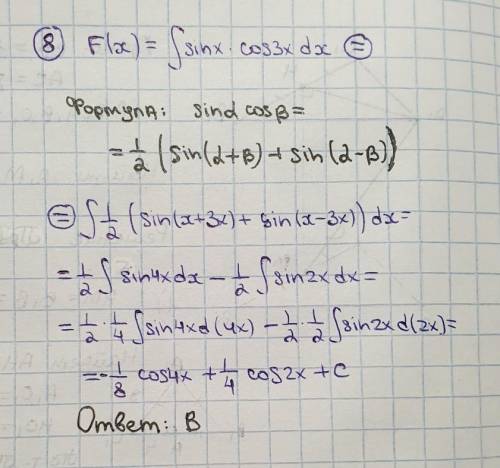 ⑧ F(x) = ∫sinx · cos3x dx ⊜
Формула: sinα cosβ =
= 1/2 (sin(α+β) + sin(α-β))
⊜ ∫ 1/2 (sin(x+3x) + sin(x-3x)) dx =
= 1/2 ∫ sin4x dx - 1/2 ∫ sin2x dx =
= 1/2 · 1/4 ∫ sin4x d(4x) - 1/2 · 1/2 ∫ sin2x d(2x) =
= -1/8 cos4x + 1/4 cos2x + C
Ответ: B